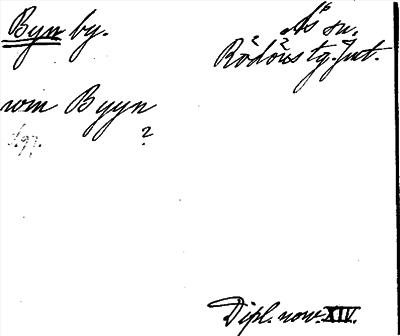 Byn by.
Ås sn.
Rödöns tg. Jmt.
wm Byyn
?
Dipl. now. XIV.